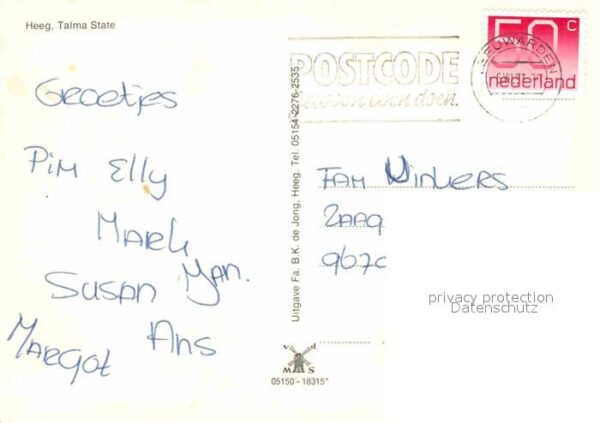 Heeg, Talma State
Groetjes
Pim Elly
Mark
Susan Jan.
Margot Ans
Uitgave Fa. B.K. de Jong, Heeg. Tel. 05154-2276-2535
POSTCODE
even doen.
LEEUWARDEN
50 c
nederland
Fam Winkers
privacy protection
Datenschutz
v d
M A S
05150 - 18315*